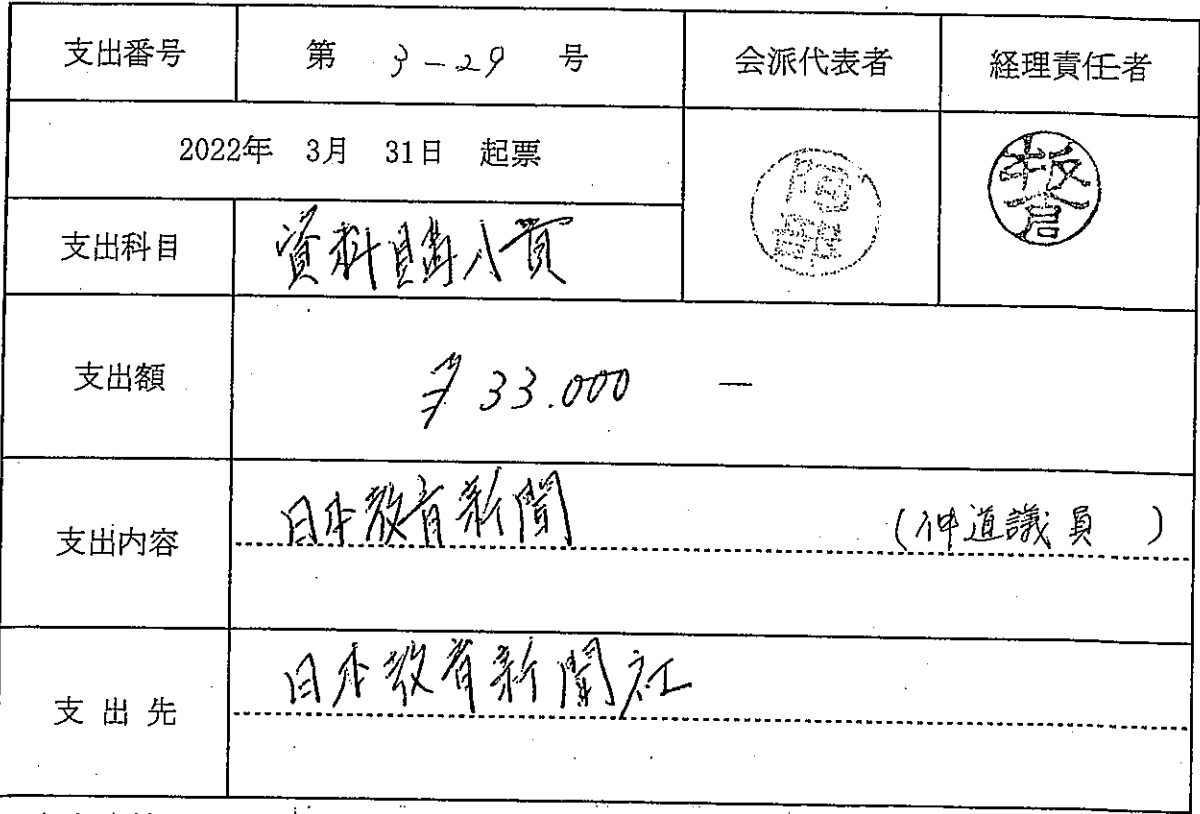 支出番号 第 3-29 号 会派代表者 経理責任者
2022年 3月 31日 起票
阿部
板倉
支出科目 資料購入費
支出額 ¥33.000 —
支出内容 日本教育新聞 (仲道議員 )
支出先 日本教育新聞社